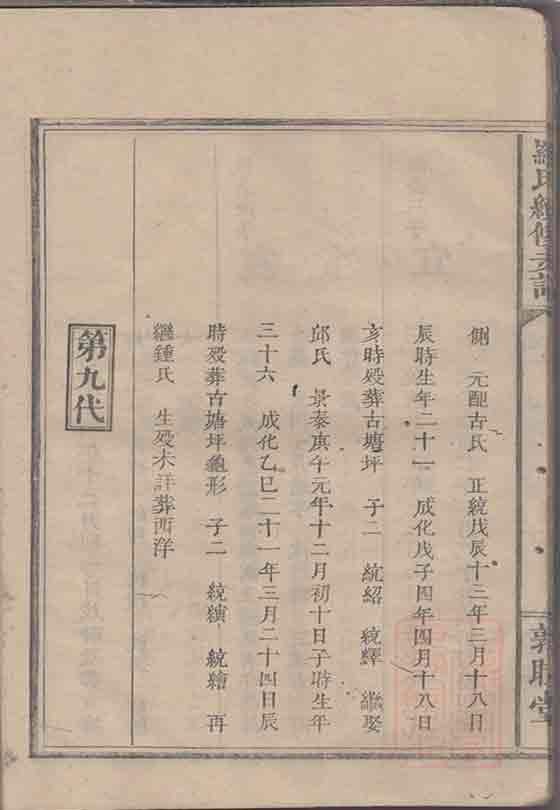 羅氏續修支譜
敦睦堂
側 元配古氏 正統戊辰十三年三月十八日
辰時生年二十一 成化戊子四年四月十八日
亥時殁葬古塘坪 子二 統紹 統繹 繼娶
邱氏 景泰庚午元年十二月初十日子時生年
三十六 成化乙巳二十一年三月二十四日辰
時殁葬古塘坪龜形 子二 統續 統繪 再
繼鍾氏 生殁未詳葬西洋
第九代